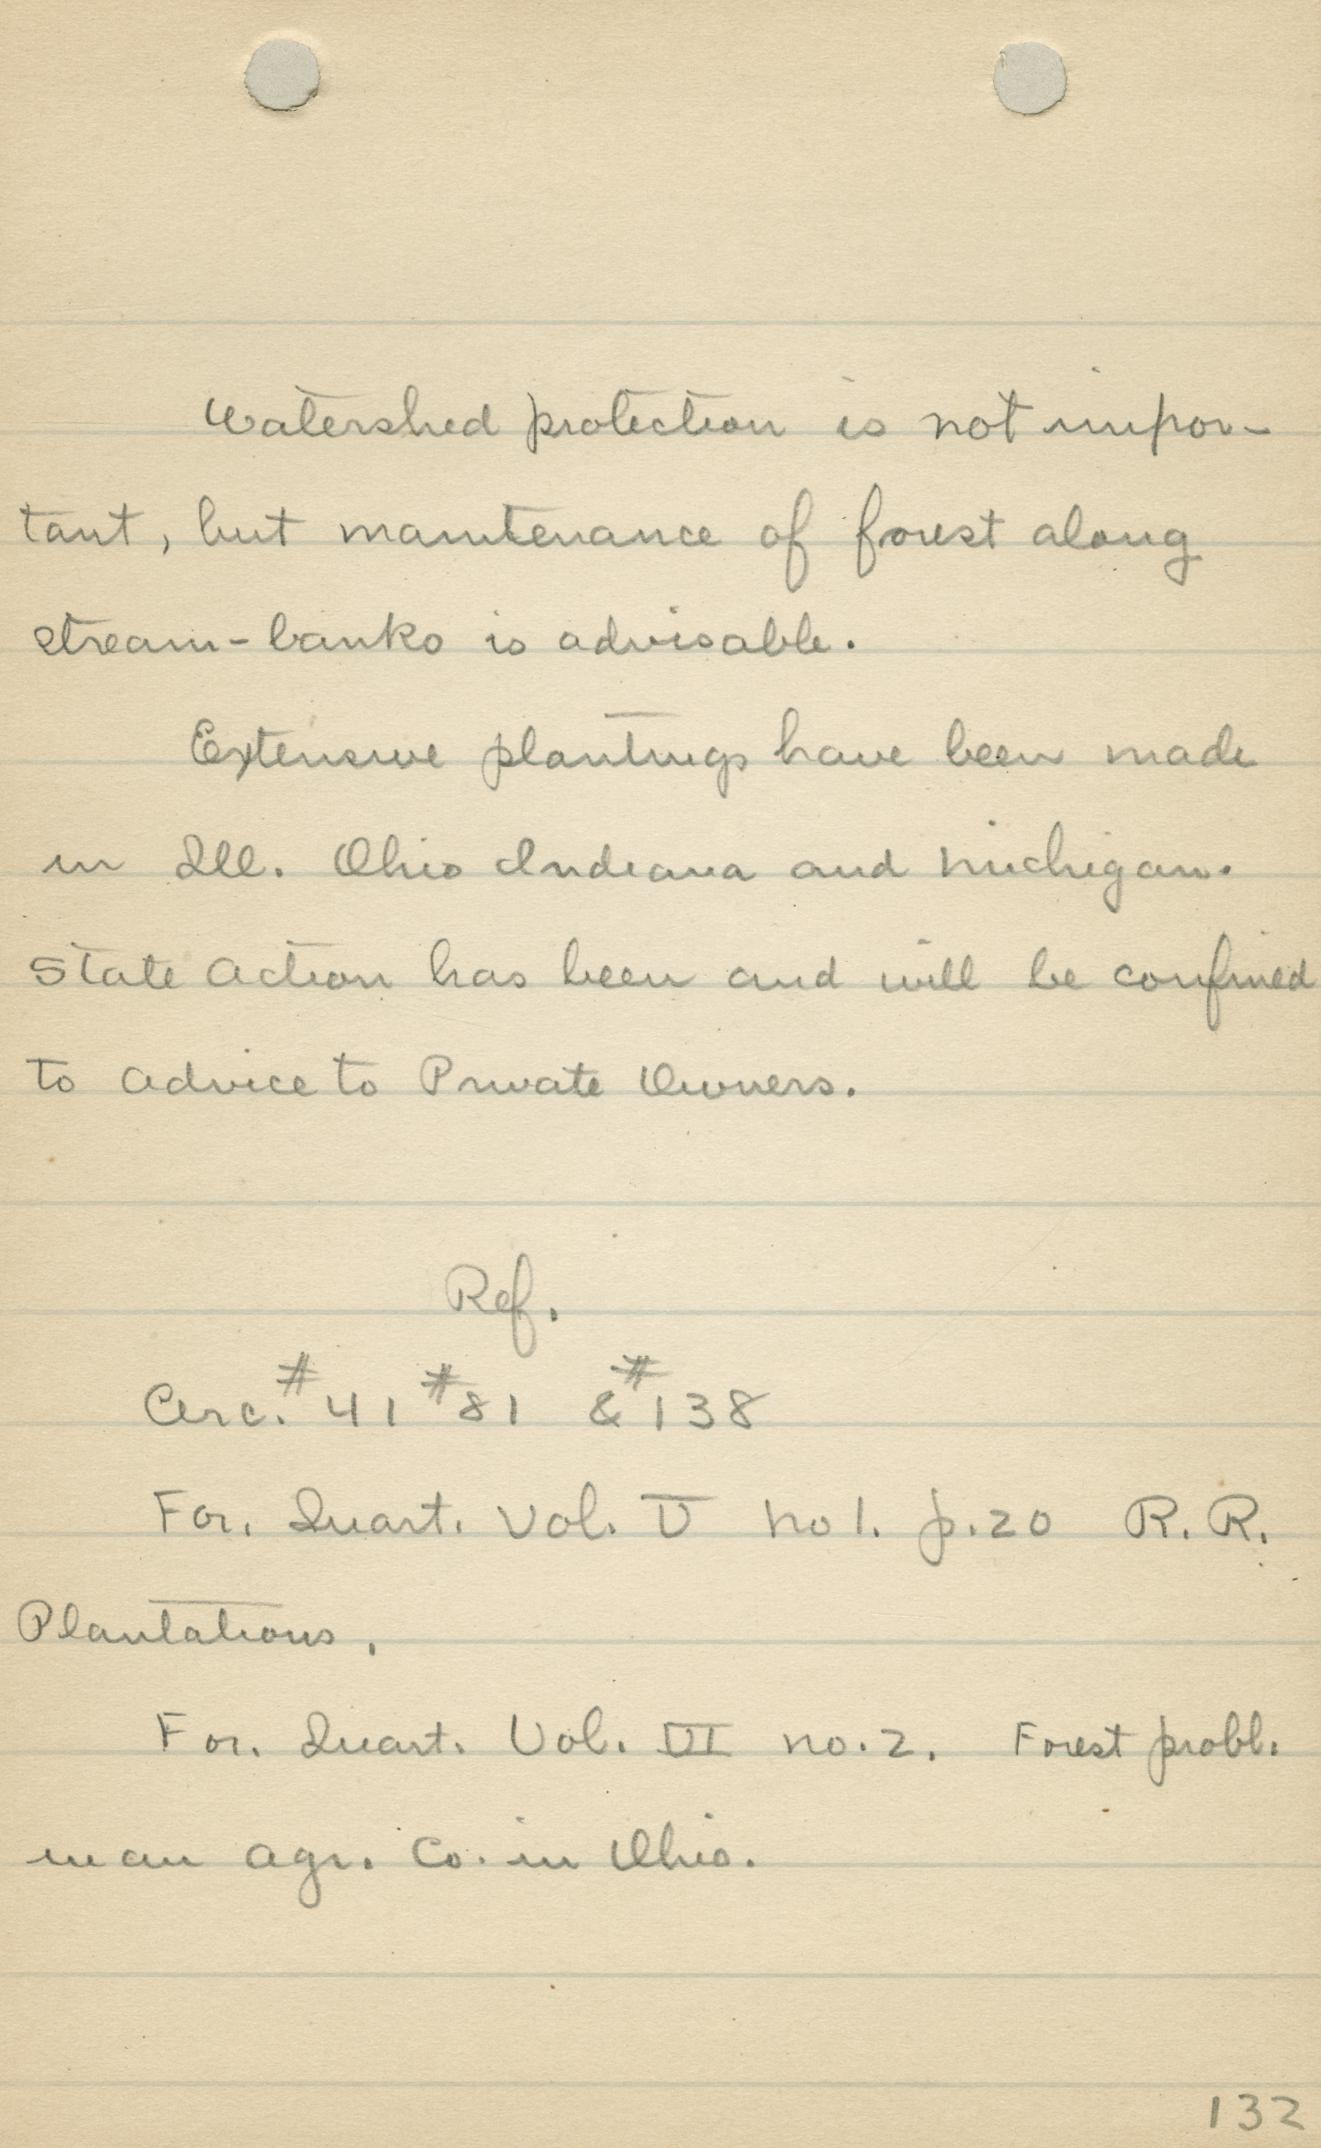 Watershed protection is not impor-
tant, but maintenance of forest along
stream-banks is advisable.
Extensive plantings have been made
in Ill. Ohio Indiana and Michigan.
State action has been and will be confined
to advice to Private Owners.
Ref.
Circ. #41 #81 & #138
For. Quart. Vol. V no 1. p. 20 R. R.
Plantations.
For. Quart. Vol. VI no. 2. Forest probl.
in an agr. Co. in Ohio.
132